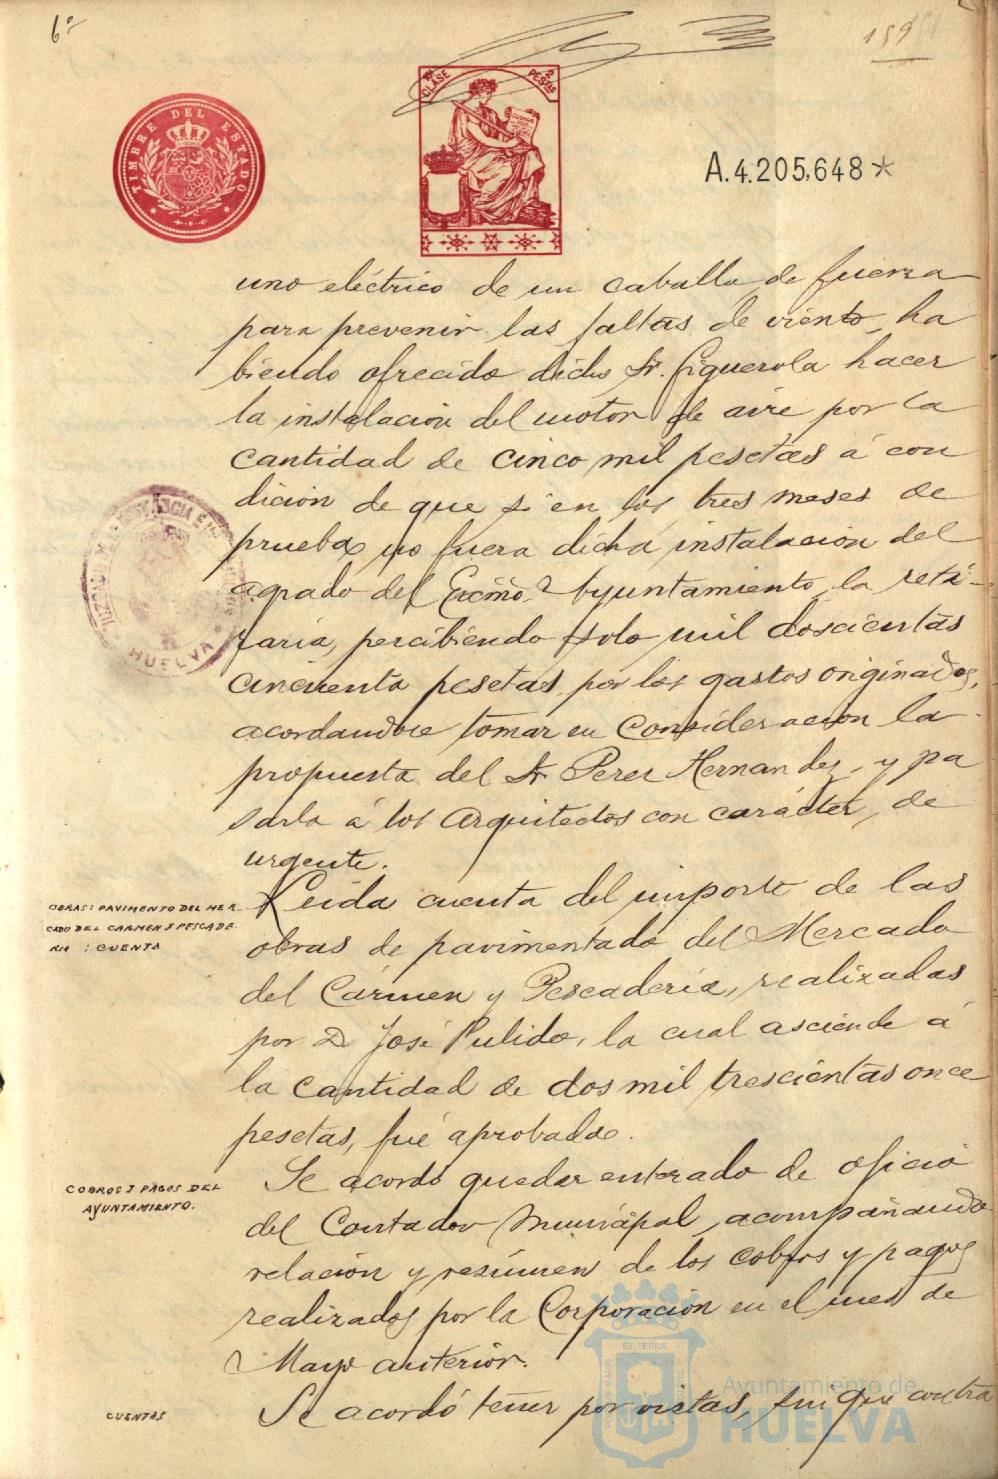 6º
159
TIMBRE DEL ESTADO
CLASE 2 PESTAS
A.4.205,648*
uno eléctrico de un caballo de fuerza
para prevenir las faltas de viento, ha
biendo ofrecido dicho Sr. Figuerola hacer
la instalación del motor de aire por la
cantidad de cinco mil pesetas á con
dición de que si en los tres meses de
prueba no fuera dicha instalación del
agrado del Excmo. Ayuntamiento, la reti-
raría, percibiendo solo mil doscientas
cincuenta pesetas, por los gastos originados,
acordandose tomar en consideración la
propuesta del Sr Perez Hernandez, y pa
sarla á los Arquitectos con carácter, de
urgente.
HUELVA
OBRAS: PAVIMENTO DEL MER
CADO DEL CARMEN Y PESCADE
RIA: CUENTA
Leida cuenta del importe de las
obras de pavimentado del Mercado
del Cármen y Pescadería, realizadas
por D José Pulido, la cual asciende á
la cantidad de dos mil trescientas once
pesetas, fué aprobada.
COBROS Y PAGOS DEL
AYUNTAMIENTO.
Se acordó quedar enterado de oficio
del Contador Municipal, acompañando
relación y resúmen de los cobros y pagos
realizados por la Corporación en el mes de
Mayo anterior.
CUENTAS
Se acordó tener por vistas, sin que contra
Ayuntamiento de
HUELVA